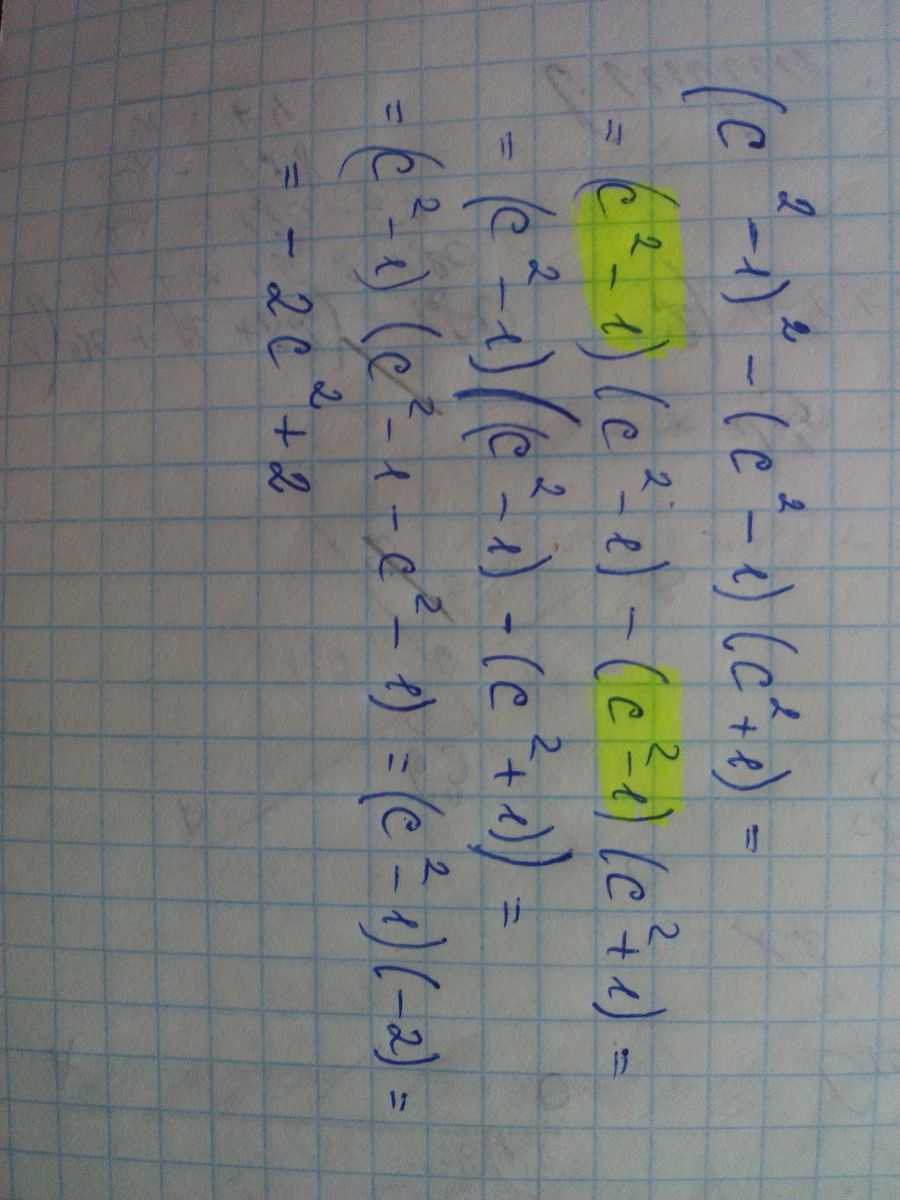 (c² - 1)² - (c² - 1)(c² + 1) =
= (c² - 1)(c² - 1) - (c² - 1)(c² + 1) =
= (c² - 1)((c² - 1) - (c² + 1)) =
= (c² - 1)(c² - 1 - c² - 1) = (c² - 1)(-2) =
= - 2c² + 2